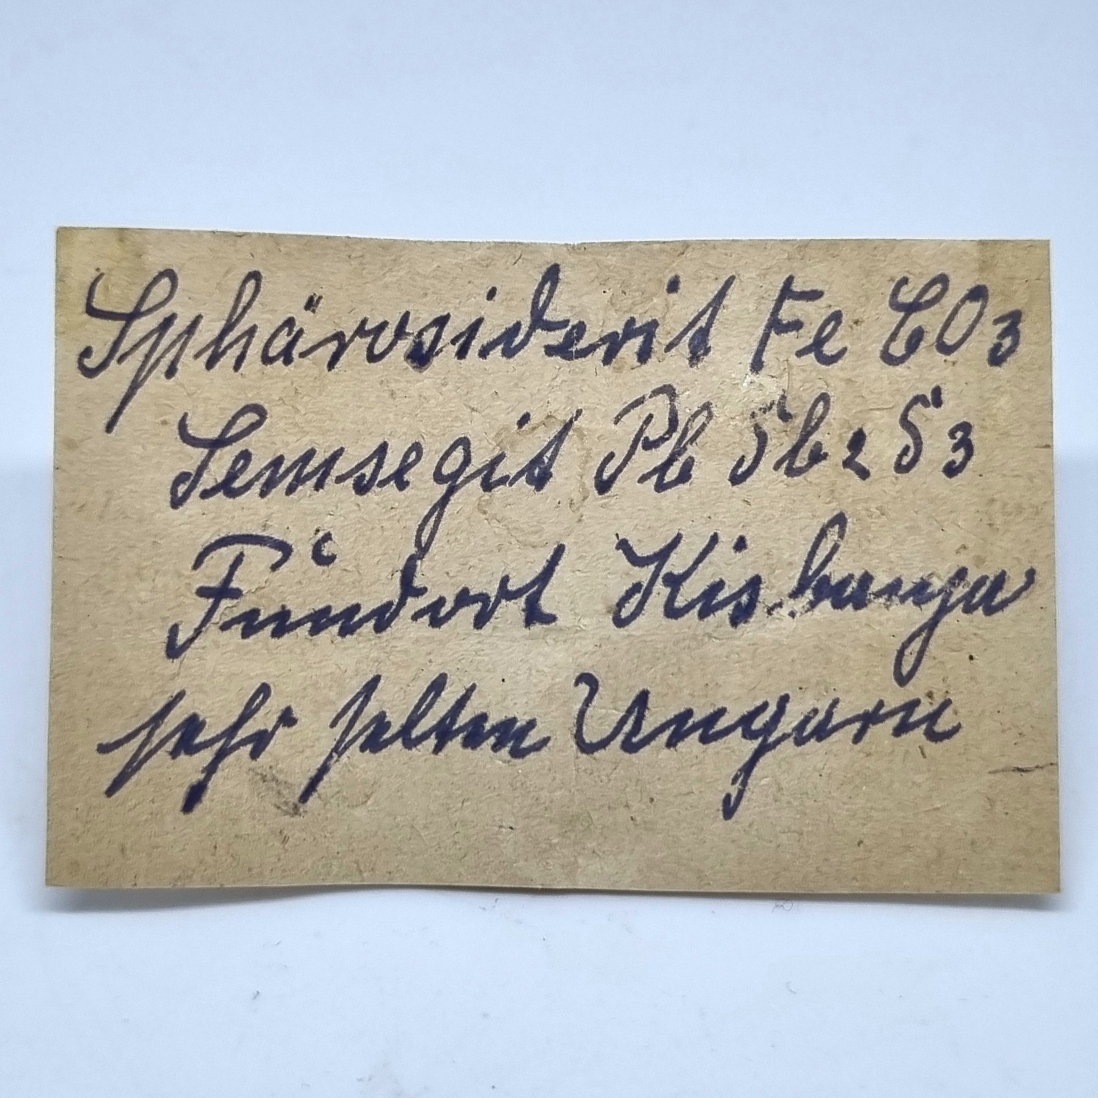 Sphärosiderit Fe CO3
Semsegit Pb Sb2 S3
Fundort Kisbanya
sehr selten Ungarn